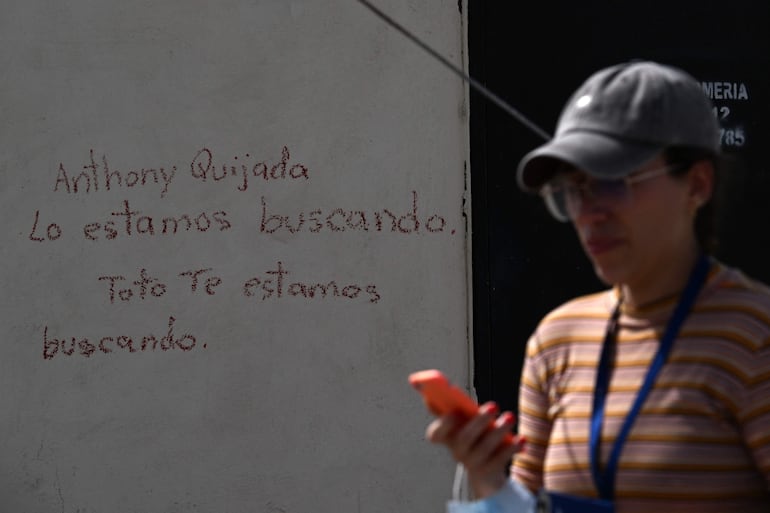 Anthony Quijada
Lo estamos buscando.
Toto Te estamos
buscando.
MERIA
12
785